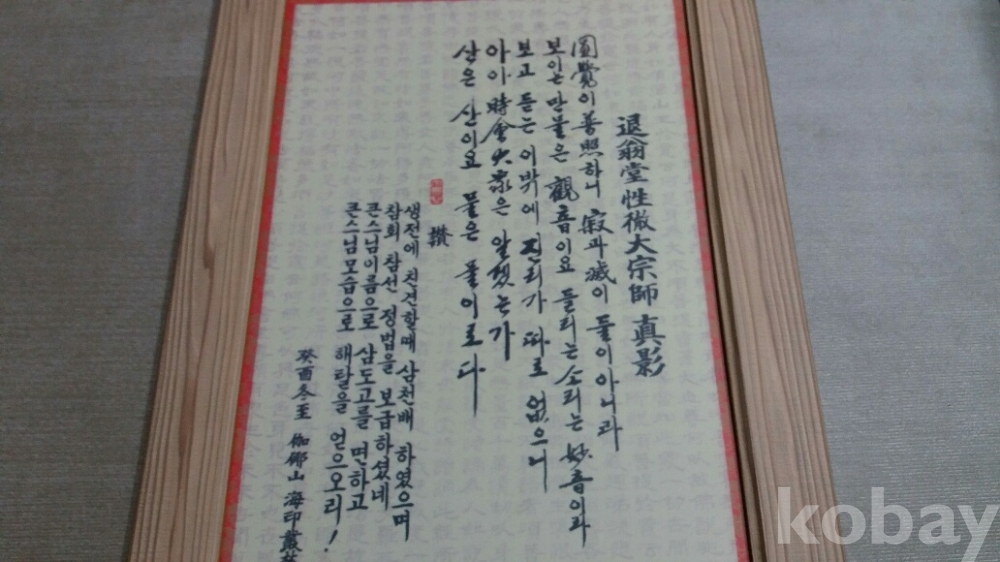 退翁堂性徹大宗師 真影
圓覺이 普照하니 寂과 滅이 둘이아니라
보이는 만물은 觀音이요 들리는 소리는 妙音이라
보고 듣는 이밖에 진리가 따로 없으니
아아 時會大衆은 알겠는가
산은 산이요 물은 물이로다
讚
생전에 친견할때 삼천배 하였으며
참회 참선 정법을 보급하셨네
큰스님이름으로 삼도고를 면하고
큰스님모습으로 해탈을 얻으오리!
癸酉冬至 伽倻山 海印叢林
kobay